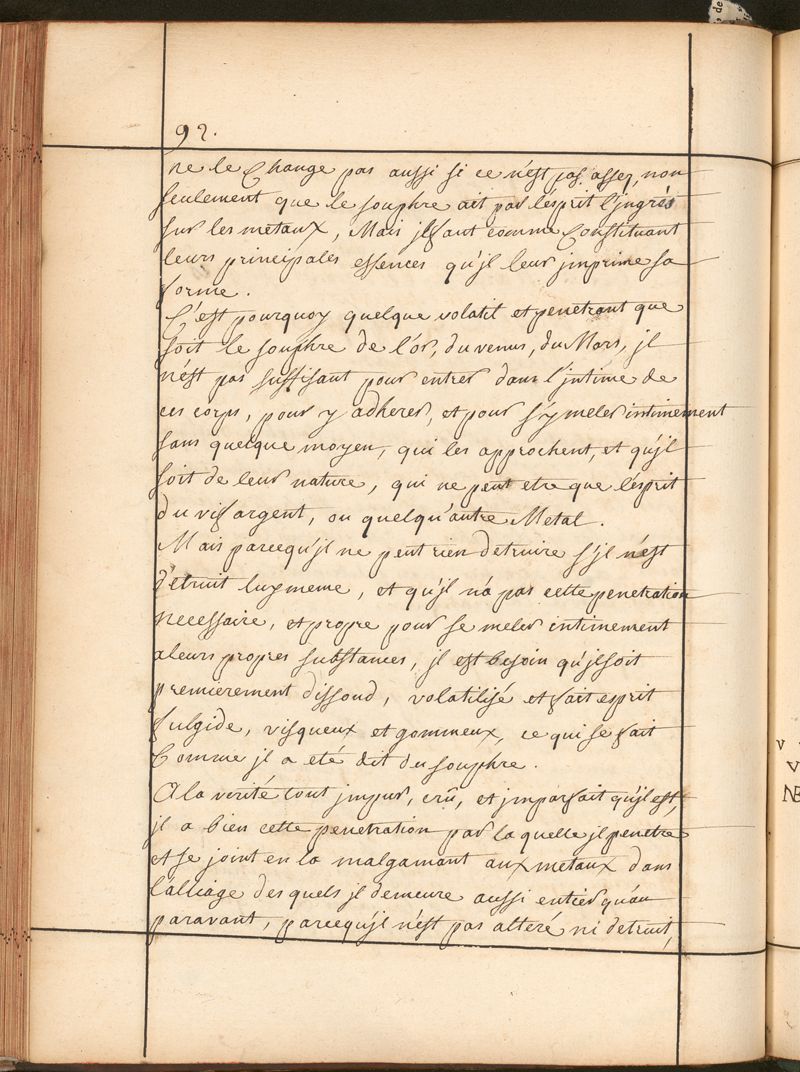 92.
ne le Change pas aussi si ce n'est pas assez, non
seulement que le souphre ait par l'esprit l'jngrés
sur les metaux, Mais jl faut comme Constituant
leurs principales essences qu'jl leur jmprime sa
forme.
C'est pourquoy quelque volatil et penetrant que
soit le souphre de l'or, du venus, du Mars, jl
n'est pas suffisant pour entrer dans l'jntime de
ces corps, pour y adherer, et pour s'y meler intimement
sans quelque moyen, qui les approchent, et qu'jl
soit de leur nature, qui ne peut etre que l'esprit
du vif argent, ou quelqu'autre Metal.
Mais parcequ'jl ne peut rien detruire s'jl n'est
d'etruit luy meme, et qu'jl n'a pas cette penetration
necessaire, et propre pour se meler intimement
a leurs propres substances, jl est besoin qu'jl soit
premierement dissoud, volatilisé et fait esprit
fulgide, visqueux et gommeux, ce qui se fait
Comme jl a eté dit du souphre.
A la verité tout jmpur, crû, et jmparfait qu'jl est,
jl a bien cette penetration par la quelle jl penetre
et se joint en la malgamant aux metaux dans
l'alliage des quels jl demeure aussi entier qu'au
paravant, parcequ'jl n'est pas alteré ni detruit,
V
V
NE